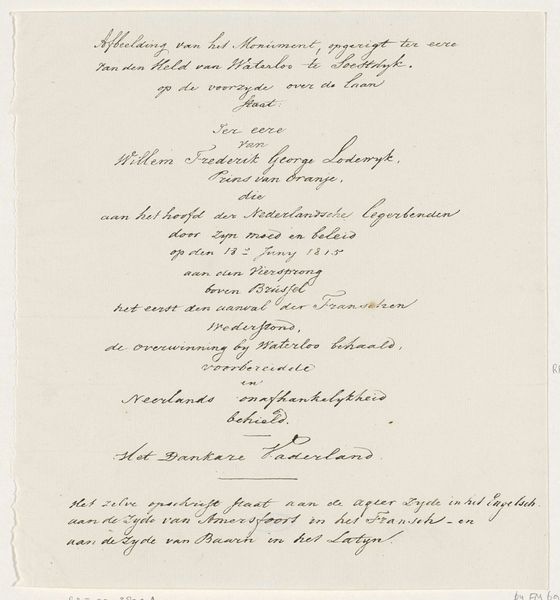 Afbeelding van het Monument, opgerigt ter eere
van den Held van Waterloo te Soestdyk.
op de voorzyde over de laan
staat:
Ter eere
van
Willem Frederik George Lodewyk,
Prins van Oranje,
die
aan het hoofd der Nederlandsche legerbenden
door zyn moed en beleid
op den 18n Juny 1815
aan den Viersprong
boven Brussel
het eerst den aanval der Franschen
Wederstond,
de overwinning by Waterloo behaald,
voorbereidde
en
Neerlands onafhankelykheid
behield.
Het Dankare Vaderland.
Het zelve opschrift staat aan de agter zyde in het Engelsch.
aan de Zyde van Amersfoort in het Fransch - en
aan de Zyde van Baarn in het Latyn